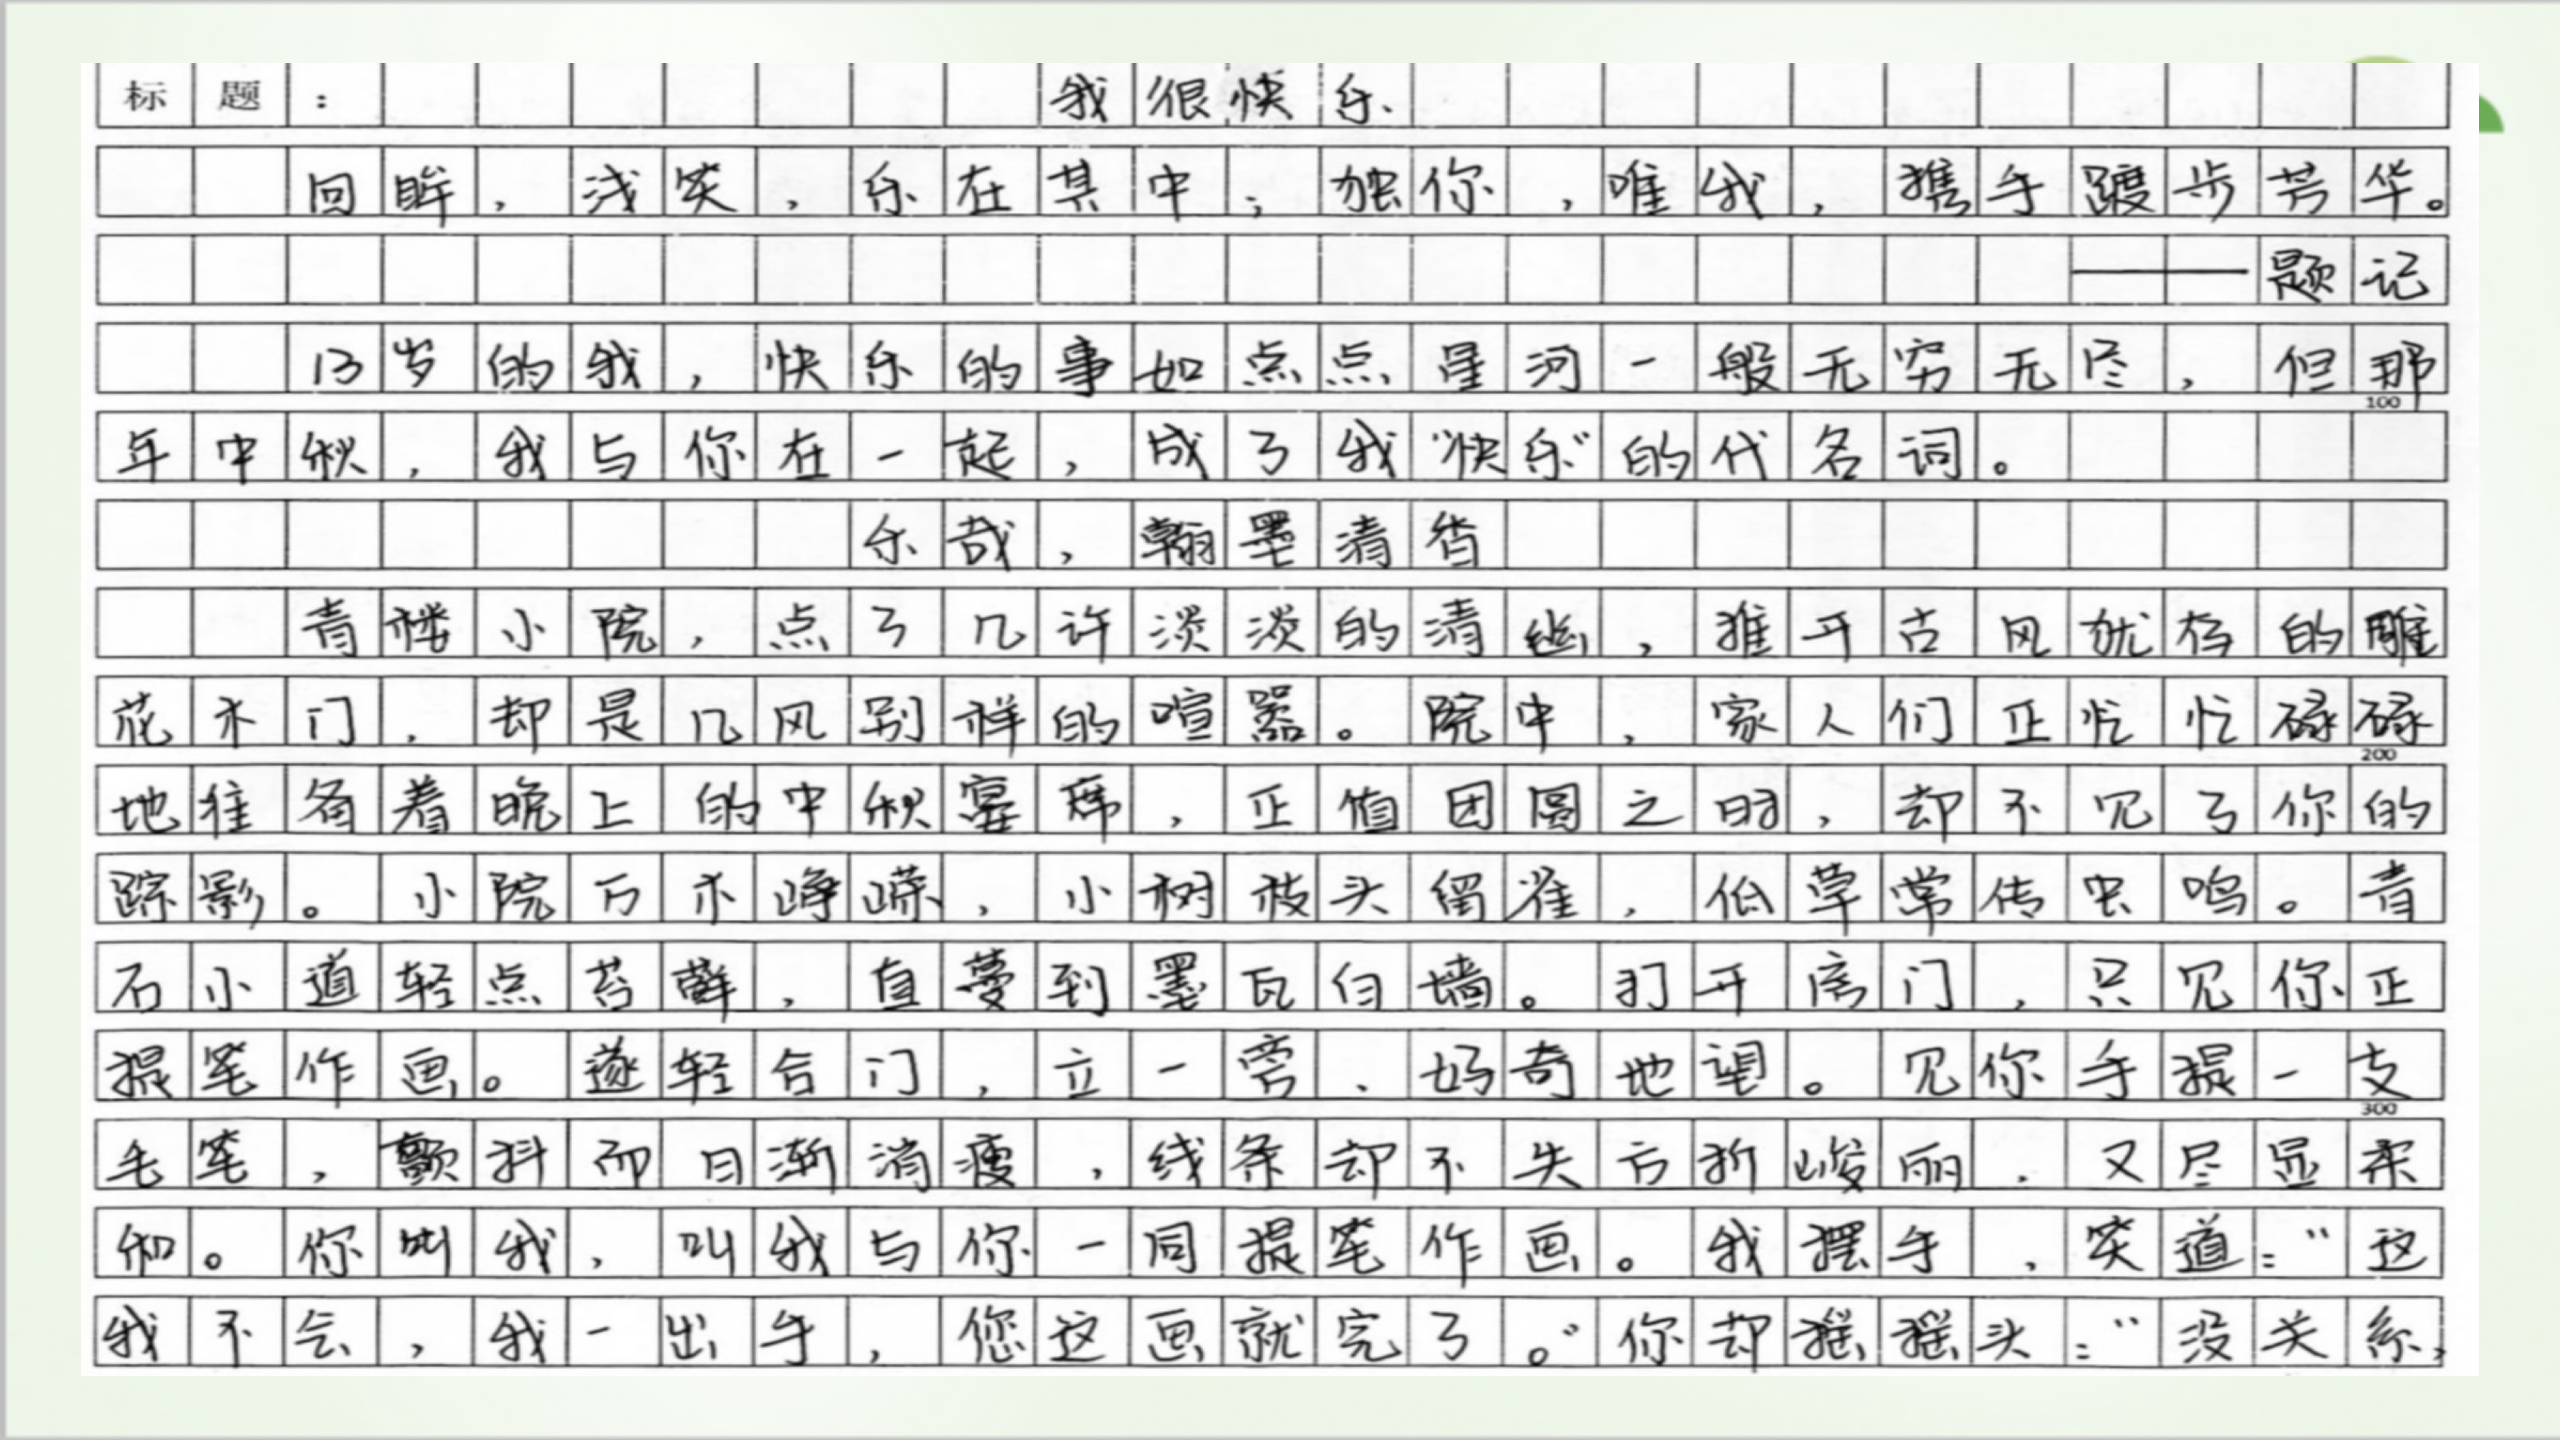 标题：我很快乐
回眸，浅笑，乐在其中；独你，唯我，携手踱步芳华。
——题记
13岁的我，快乐的事如点点星河一般无穷无尽，但那
100
年中秋，我与你在一起，成了我“快乐”的代名词。
乐哉，翰墨清香
青楼小院，点了几许淡淡的清幽，推开古风犹存的雕
花木门，却是几风别样的喧嚣。院中，家人们正忙忙碌碌
200
地准备着晚上的中秋宴席，正值团圆之时，却不见了你的
踪影。小院万木峥嵘，小树枝头留雀，低草常传虫鸣。青
石小道轻点苔藓，直蔓到墨瓦白墙。打开房门，只见你正
提笔作画。遂轻合门，立一旁，好奇地望。见你手提一支
300
毛笔，颤抖而日渐消瘦，线条却不失方折峻丽，又尽显柔
和。你叫我，叫我与你一同提笔作画。我摆手，笑道：“这
我不会，我一出手，您这画就完了。”你却摇摇头：“没关系，